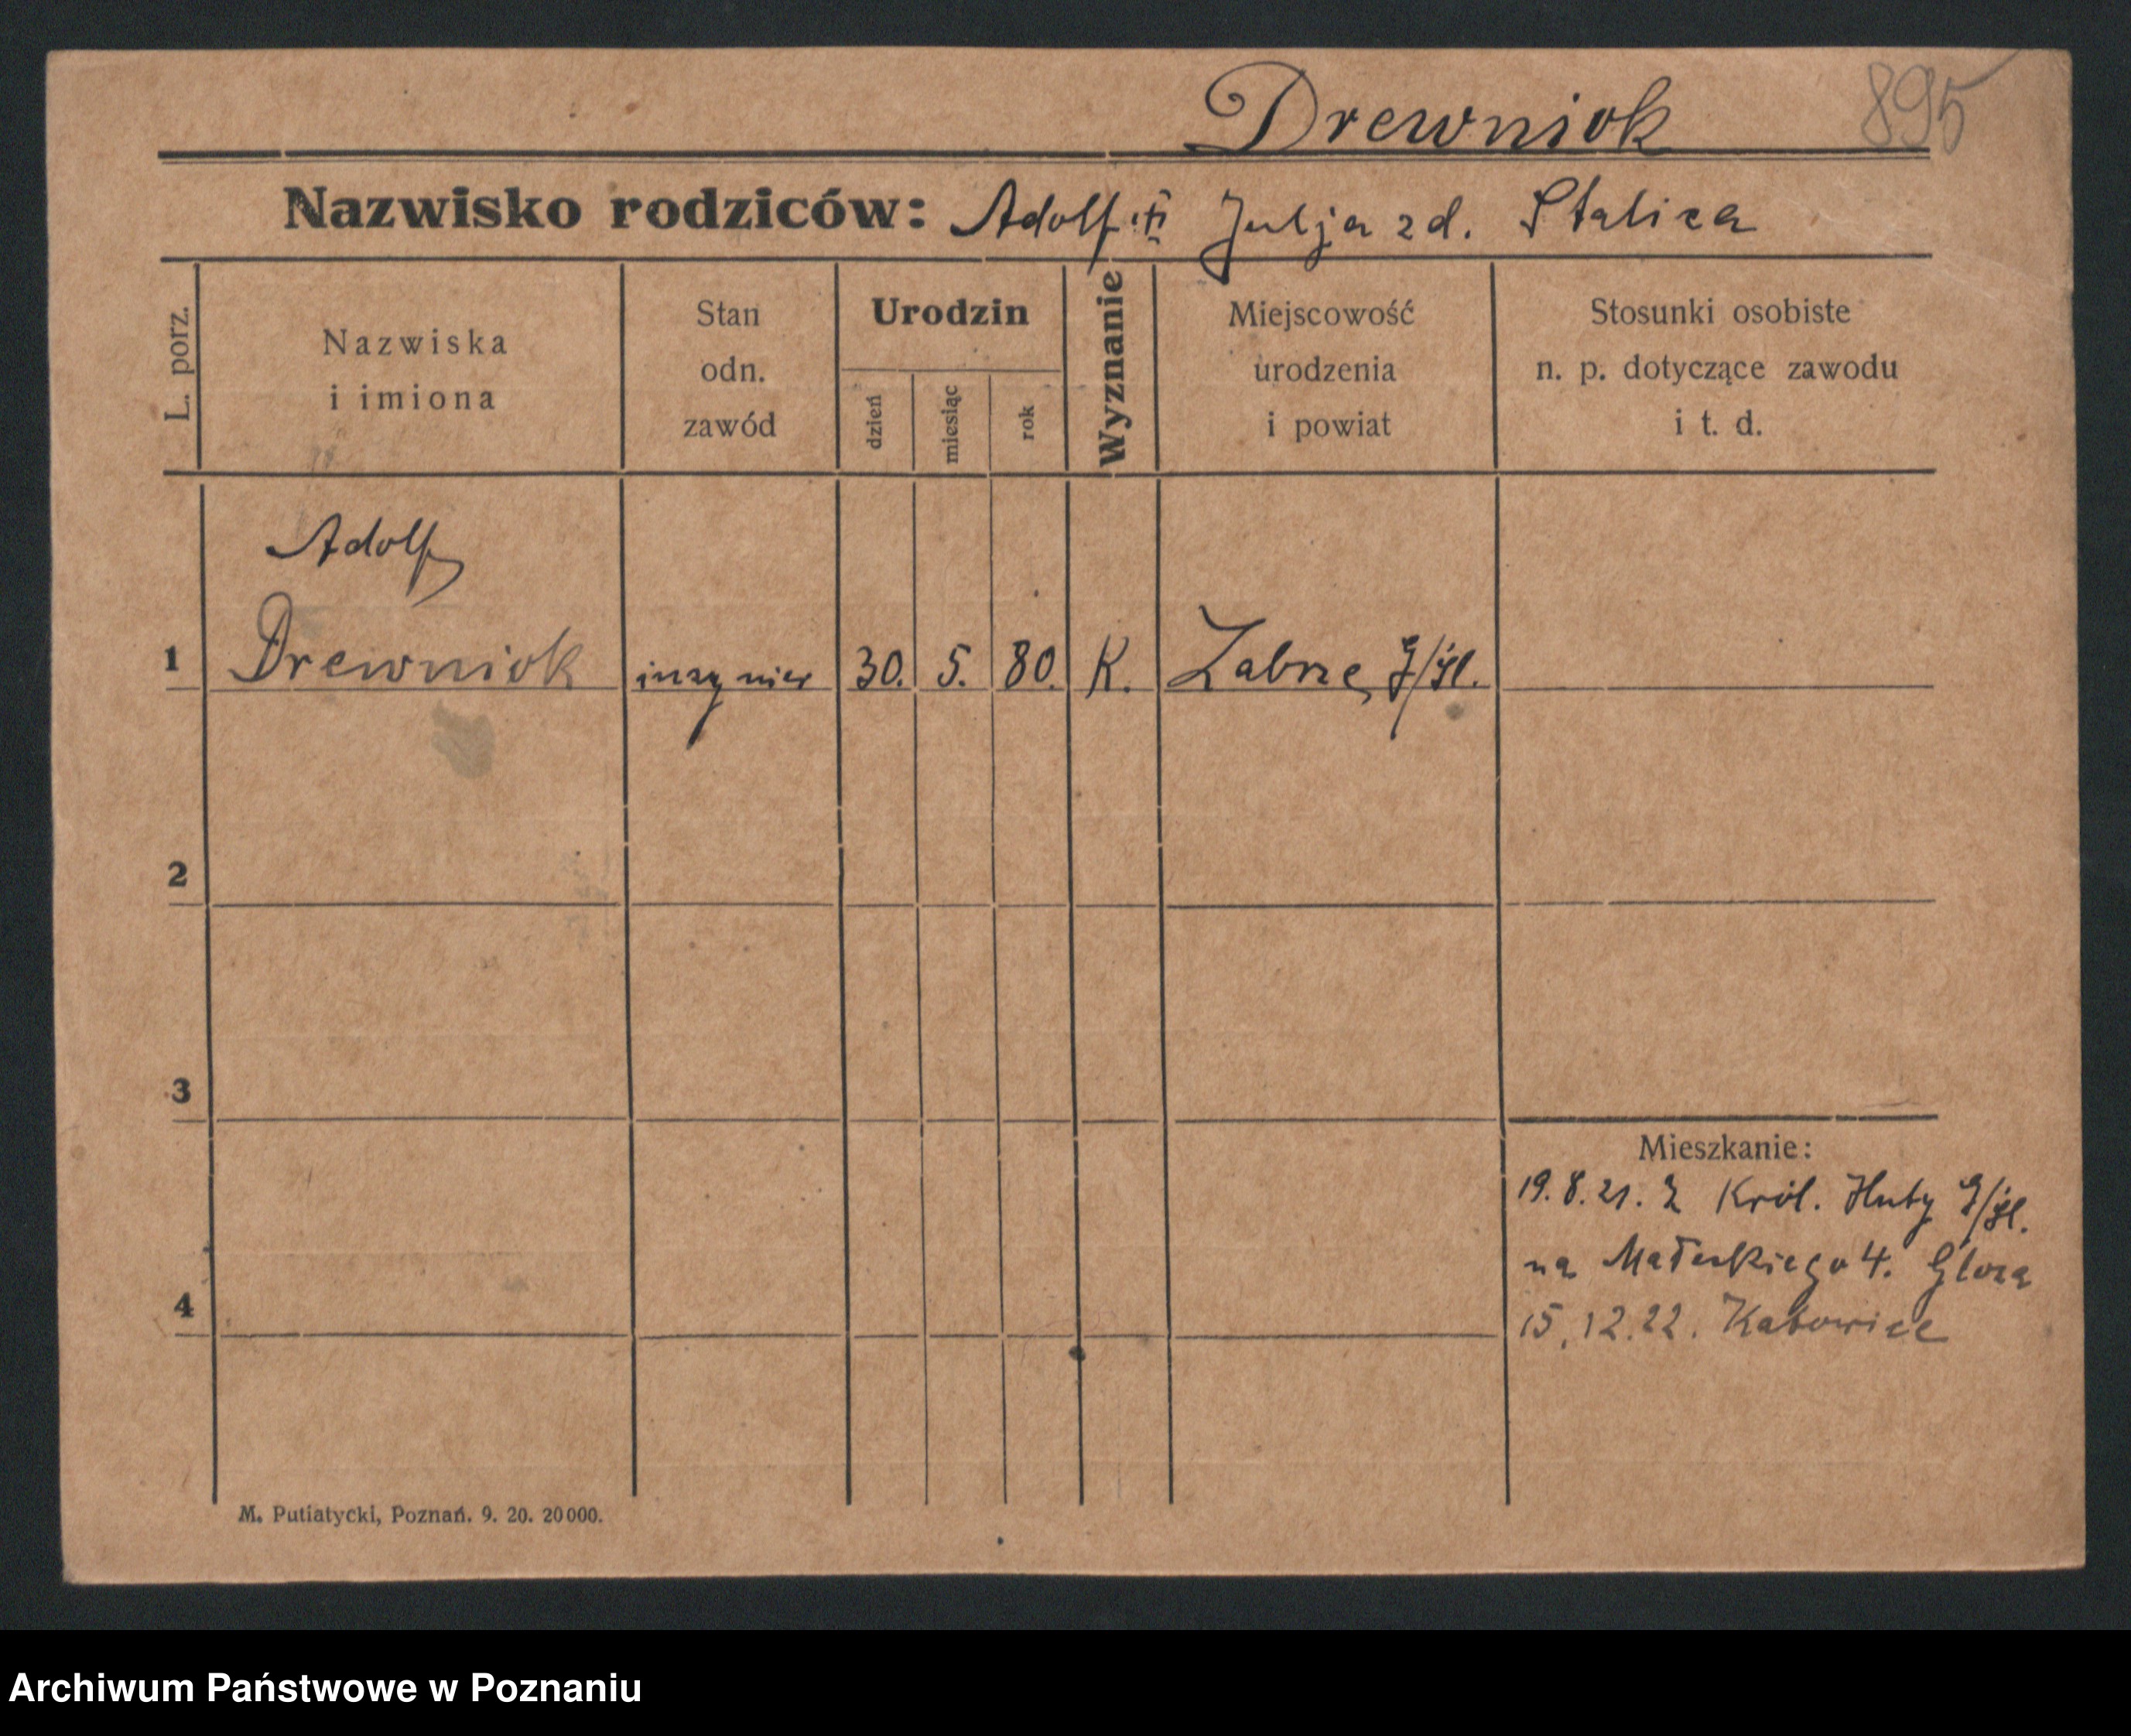 Drewniok 895
Nazwisko rodziców: Adolf i Julja zd. Stalica
L. porz.
Nazwiska
i imiona
Stan
odn.
zawód
Urodzin
dzień
miesiąc
rok
Wyznanie
Miejscowość
urodzenia
i powiat
Stosunki osobiste
n. p. dotyczące zawodu
i t. d.
Adolf
1 Drewniok inżynier 30. 5. 80. K. Zabrze, G/Śl.
2
3
4
Mieszkanie:
19.8.21. Z Król. Huty G/Śl.
na Małeckiego 4.
15.12.22. Katowice
M. Putiatycki, Poznań. 9. 20. 20000.
Archiwum Państwowe w Poznaniu